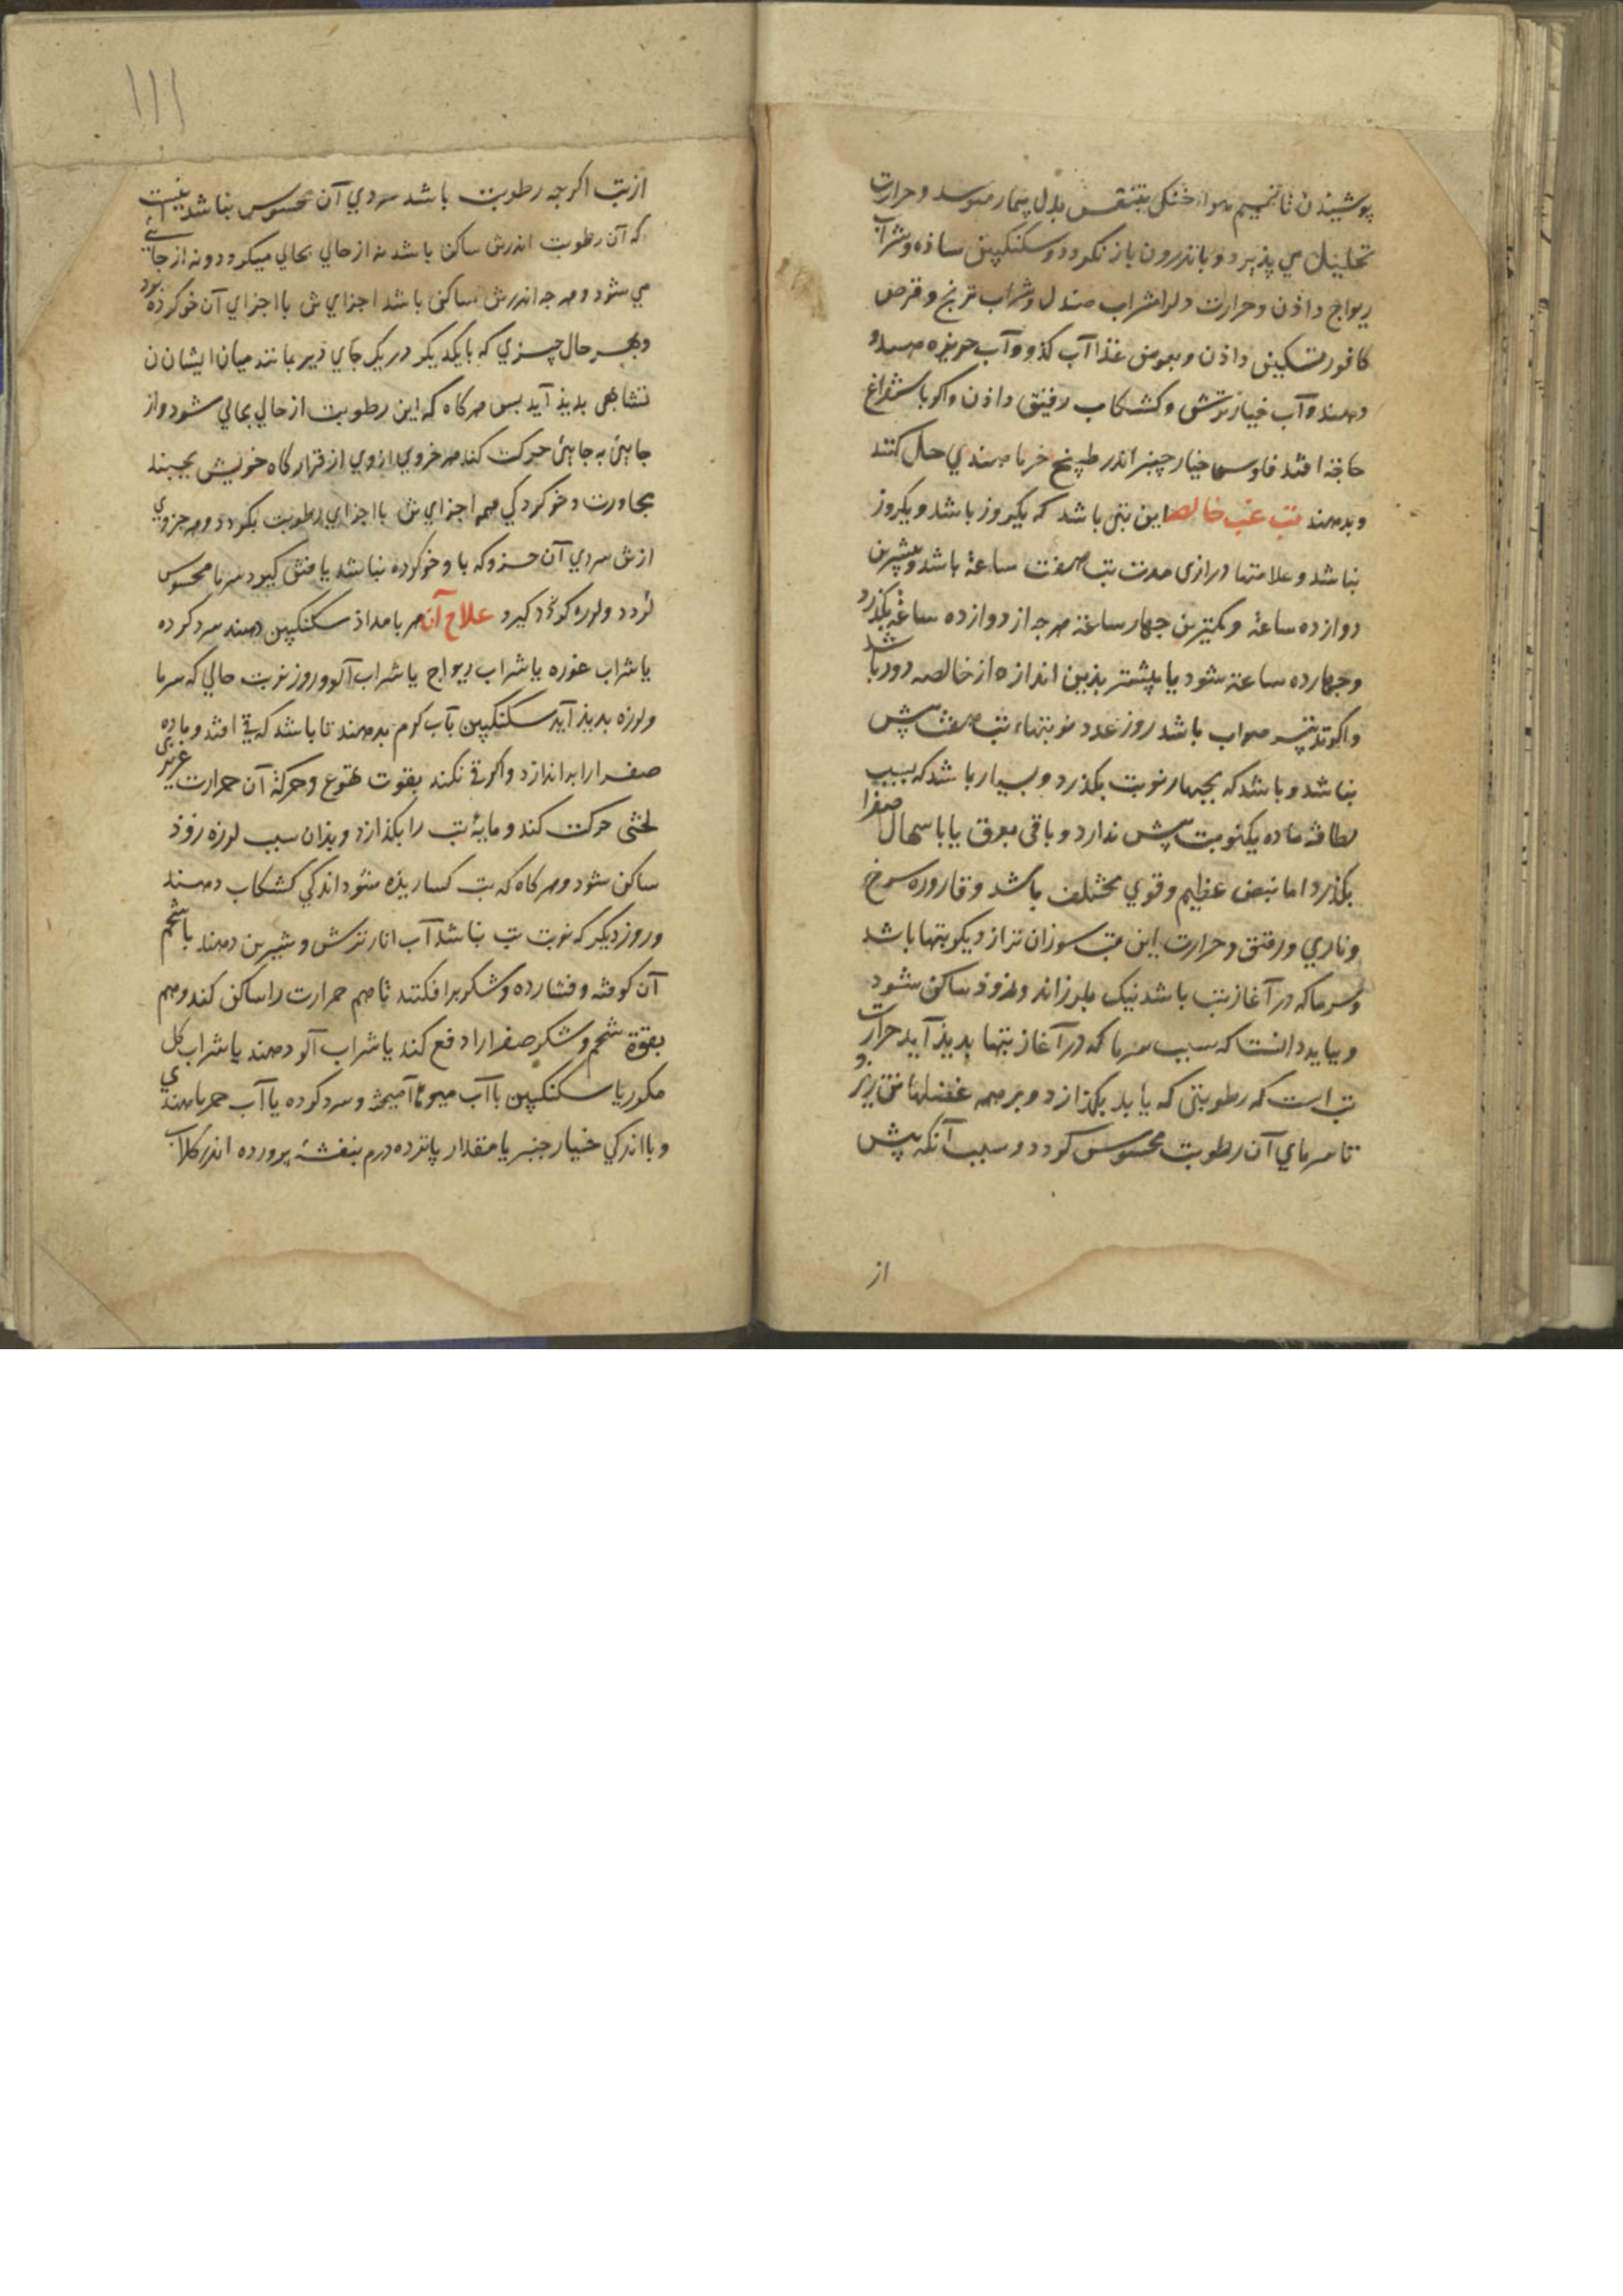 پوشیذن تا نسیم هواء خنک بتنفس بدل بیمار میرسد و حرارت
تحلیل می پذیرد و باندرون باز نکردد و سکنکبین ساذه و شراب
ریواج داذن و حرارت دلرا شراب صندل و شراب ترنج و قرص
کافور تسکین داذن و بعوض غذا آب کذو و آب خربزه هندو
دهند و آب خیار ترش و کشکاب رقیق داذن و اکر باستفراغ
حاجة افتد فلوس خیار چنبر اندر طبیخ خرما هندی حل کنند
و بدهند تب غب خالصه این تبی باشد که یکروز باشد و یکروز
نباشد و علامتها درازی مدت تب هفت ساعة باشد و بیشترین
دوازده ساعة و کمترین چهار ساعة هرچه از دوازده ساعة بکذرد
و چهارده ساعة شود یا بیشتر بذین اندازه از خالصه دور باشد
و اکر تدبیر صواب باشد روز عدد نوبتهاء تب هفت بیش
نباشد و باشد که بچهار نوبت بکذرد و بسیار باشد که بسبب
لطافة ماده یکنوبت بیش ندارد و باقی بعرق یا باسهال صفرا
بکذرد اما نبض عظیم و قوی مختلف باشد و قاروره سرخ
و ناری و رقیق و حرارت این تب سوزان تر از دیکر تبها باشد
و سرما که در آغاز تب باشد نیک بلرزاند و زوذ ساکن شود
و بباید دانست که سبب سرما که در آغاز تبها بدیذ آید حرارت
تب است که رطوبتی که یابد بکذازد و بر همه عضلها تن ریزد
تا سرمای آن رطوبت محسوس کردد و سبب آنکه پیش
از
۱۱۱
از تب اکر چه رطوبت باشد سردی آن محسوس نباشد آنست
که آن رطوبت اندرش ساکن باشد نه از حالی بحالی میکردد و نه از جائی
می شود و هرچه اندرش ساکن باشد اجزای ش با اجزای آن خو کرده بود
و بهر حال چیزی که با یکدیکر در یک جای دیر بمانند میان ایشان
بدیذ آید بس هرکاه که این رطوبت از حالی بحالی شود و از
جایئ به جایئ حرکت کند هر جزوی ازوی از قرارکاه خویش بجنبد
مجاورت و خو کردکی همه اجزای ش با اجزای رطوبت بکردد و هر جزوی
ازش سردی آن جزو که با و خو کرده نباشد یافتن کیرد سرما محسوس
کردد و لرزه کردد کیرد علاج آن هر بامداذ سکنکبین دهند سرد کرده
یا شراب غوره یا شراب ریواج یا شراب آلو و روز نوبت حالی که سرما
و لرزه بدیذ آید سکنکبین بآب کرم بدهند تا باشد که قی افتد و ماده
صفرا را براندازد و اکر قی نکند بقوت تهوع و حرکة آن حرارت غریزی
لختی حرکت کند و مایهٔ تب را بکذازد و بذان سبب لرزه زوذ
ساکن شود و هرکاه که تب کساریذه شود اندکی کشکاب دهند
و روز دیکر که نوبت تب نباشد آب انار ترش و شیرین دهند با شحم
آن کوفته و فشارده و شکر برافکنند تا هم حرارت را ساکن کند و هم
بقوة شحم و شکر صفرا را دفع کند یا شراب آلو دهند یا شراب کل
مکرر یا سکنکبین با آب میوها آمیخته و سرد کرده یا آب خرما هندی
و با اندکی خیار چنبر یا مقدار پانزده درم بنفشه پرورده اندر کلاب